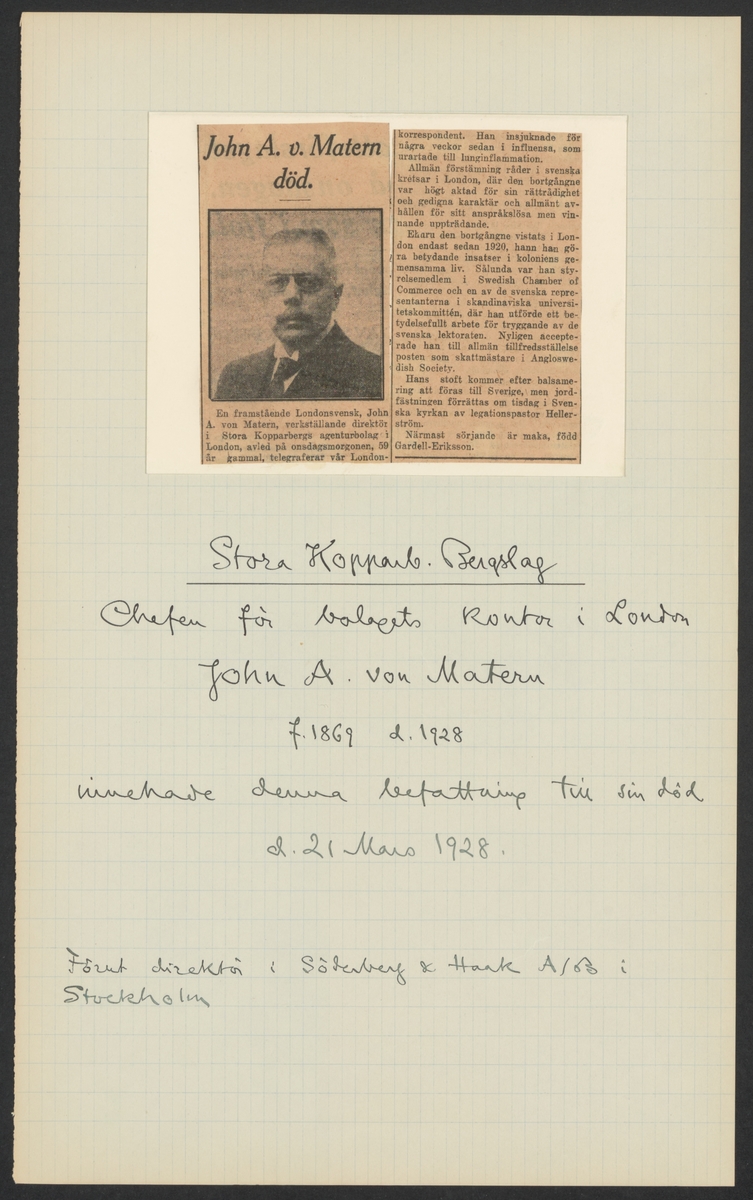 John A. v. Matern
död.
En framstående Londonsvensk, John
A. von Matern, verkställande direktör
i Stora Kopparbergs agenturbolag i
London, avled på onsdagsmorgonen, 59
år gammal, telegraferar vår London-
korrespondent. Han insjuknade för
några veckor sedan i influensa, som
urartade till lunginflammation.
Allmän förstämning råder i svenska
kretsar i London, där den bortgångne
var högt aktad för sin rättrådighet
och gedigna karaktär och allmänt av-
hållen för sitt anspråkslösa men vin-
nande uppträdande.
Eharu den bortgångne vistats i Lon-
don endast sedan 1920, hann han gö-
ra betydande insatser i koloniens ge-
mensamma liv. Sålunda var han sty-
relsemedlem i Swedish Chamber of
Commerce och en av de svenska repre-
sentanterna i skandinaviska universi-
tetskommittén, där han utförde ett be-
tydelsefullt arbete för tryggande av de
svenska lektoraten. Nyligen accepte-
rade han till allmän tillfredsställelse
posten som skattmästare i Angloswe-
dish Society.
Hans stoft kommer efter balsame-
ring att föras till Sverige, men jord-
fästningen förrättas om tisdag i Sven-
ska kyrkan av legationspastor Heller-
ström.
Närmast sörjande är maka, född
Gardell-Eriksson.
Stora Kopparb. Bergslag
Chefen för bolagets kontor i London
John A. von Matern
f. 1869 d. 1928
innehade denna befattning till sin död
d. 21 Mars 1928.
Förut direktör i Söderberg & Haak A/B i
Stockholm